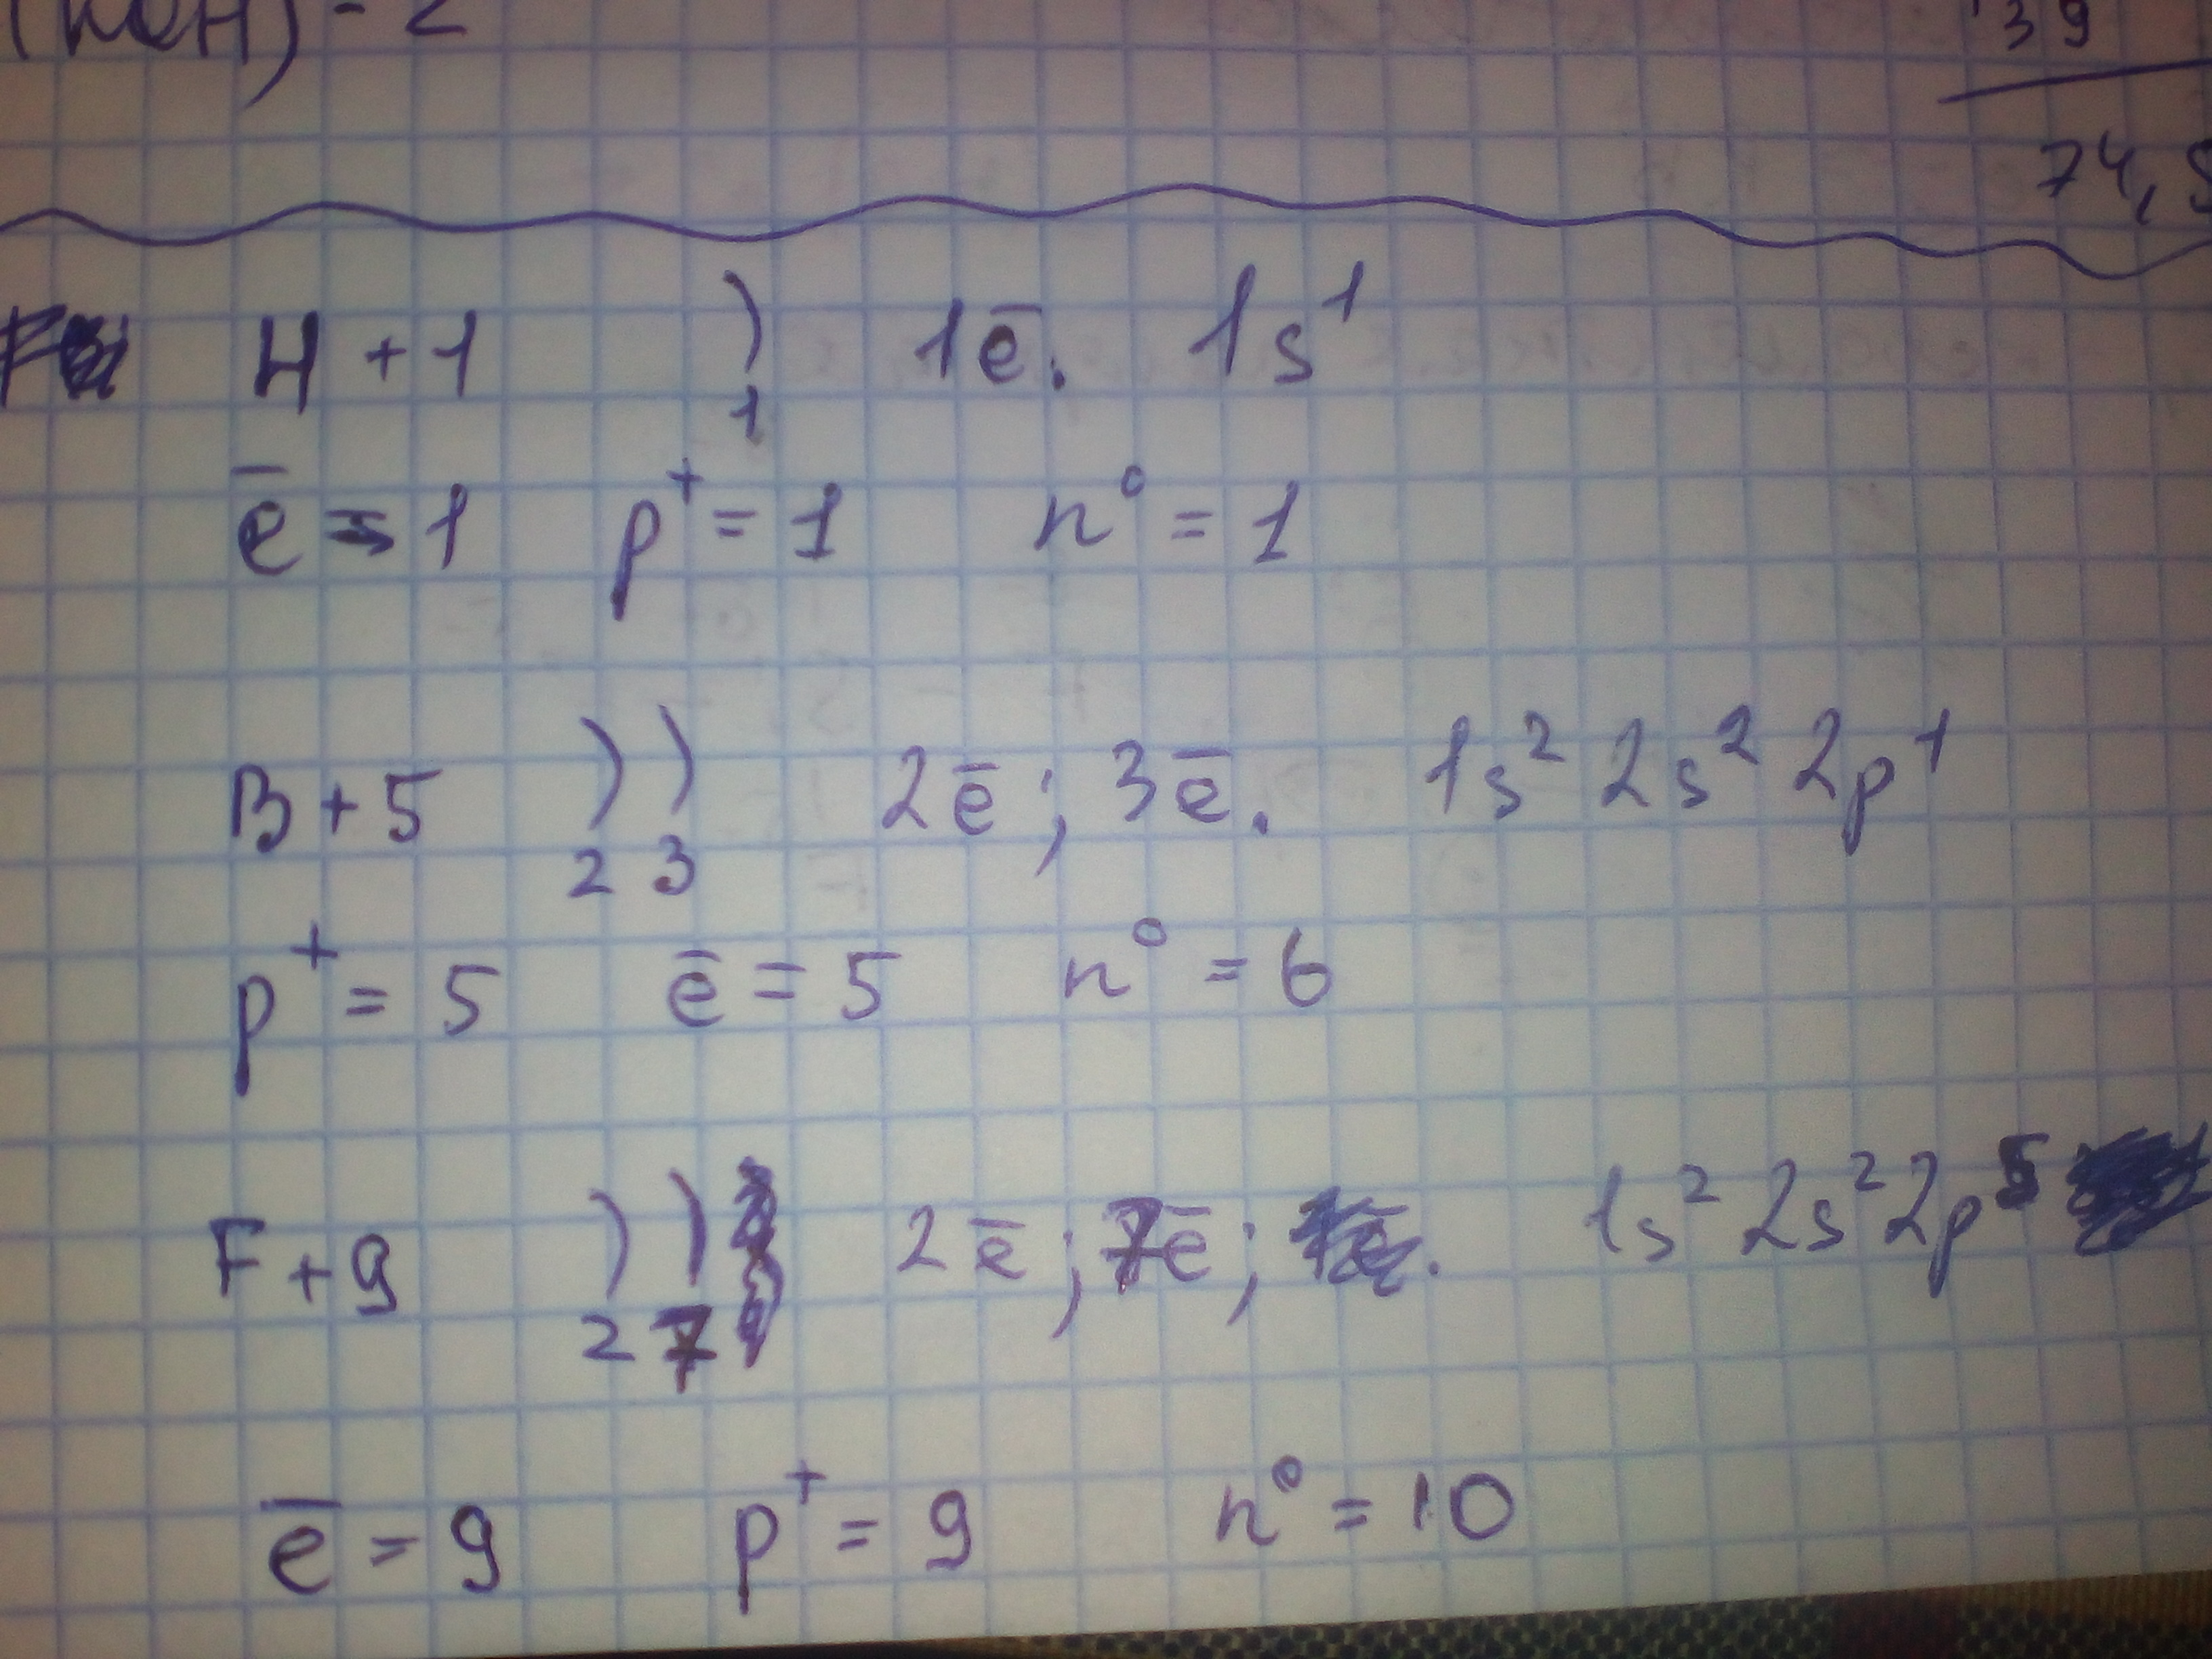 39
74,5
H +1 ) 1e̅. 1s¹
1
e̅ = 1 p⁺ = 1 n⁰ = 1
B +5 ) ) 2e̅; 3e̅. 1s² 2s² 2p¹
2 3
p⁺ = 5 e̅ = 5 n⁰ = 6
F +9 ) ) 2e̅; 7e̅; . 1s² 2s² 2p⁵
2 7
e̅ = 9 p⁺ = 9 n⁰ = 10